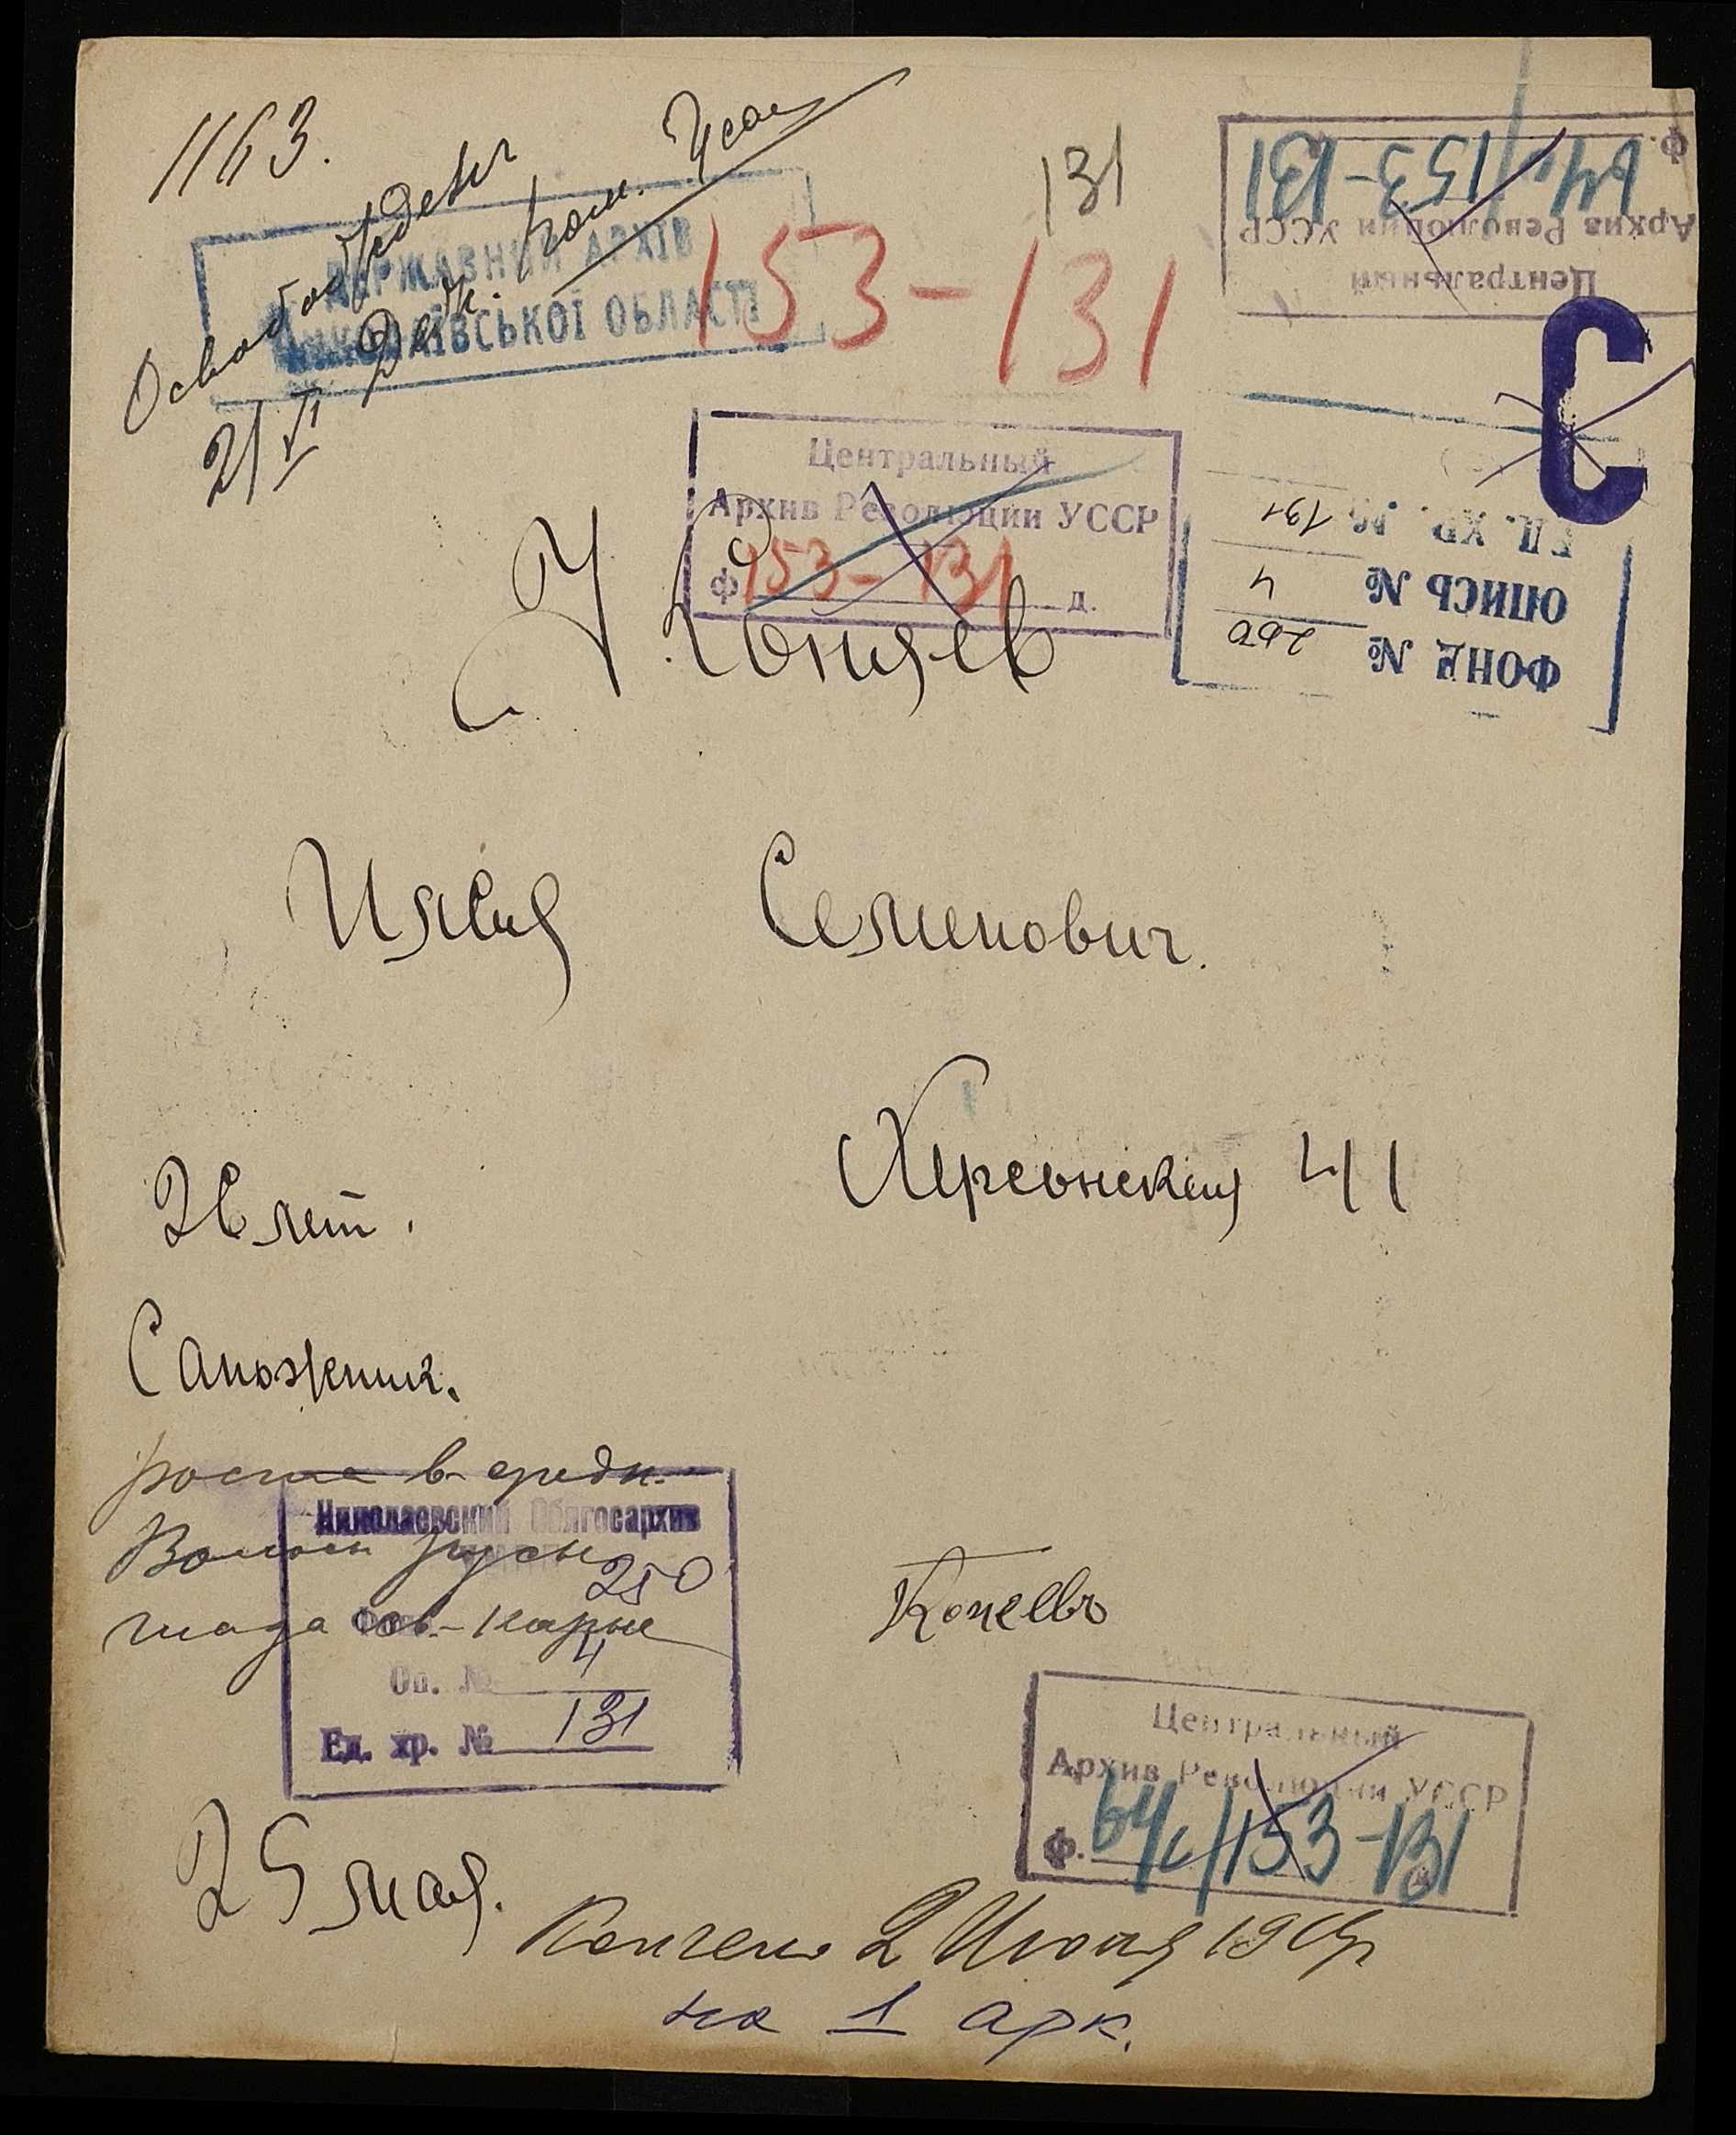 1163.
Освобожден
21/VI
131
153-131
ДЕРЖАВНИЙ АРХІВ
МИКОЛАЇВСЬКОЇ ОБЛАСТІ
Центральный
Архив Революции УССР
Ф. 64с/153-131
С
Центральный
Архив Революции УССР
ф. 153-131 д.
ФОНД № 250
ОПИСЬ № 4
ЕД. ХР. № 131
Семенович.
Херсонская 41
лет.
Сапожник.
роста в. средн.
Волосы русы
глаза св.-карие
Николаевский Облгосархив
250
Оп. № 4
Ед. хр. № 131
Центральный
Архив Революции УССР
ф. 64с/153-131
25 мая.
2 Июня 19
на 1 арк.